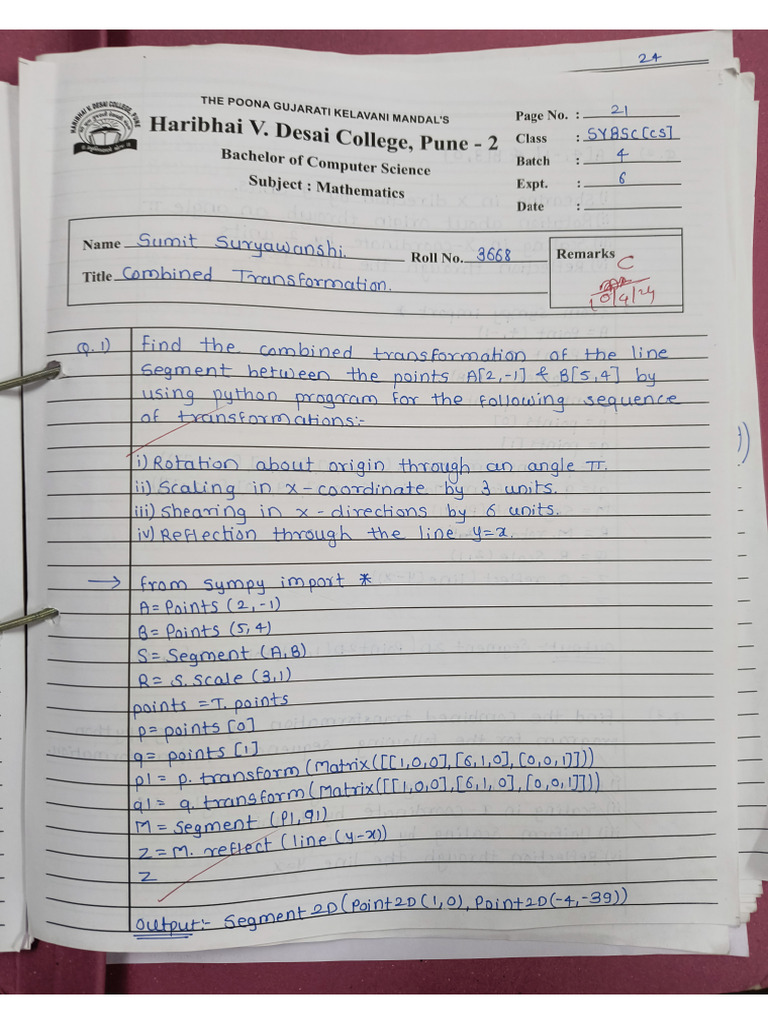 24
THE POONA GUJARATI KELAVANI MANDAL'S
Haribhai V. Desai College, Pune - 2
Bachelor of Computer Science
Subject : Mathematics
HARIBHAI V. DESAI COLLEGE, PUNE
Page No. : 21
Class : SYBSC[CS]
Batch : 4
Expt. : 6
Date :
Name Sumit Suryawanshi.
Roll No. 3668
Title Combined Transformation.
Remarks
C
10/4/24
Q.1) Find the combined transformation of the line
segment between the points A[2,-1] & B[5,4] by
using python program for the following sequence
of transformations:-
i) Rotation about origin through an angle π.
ii) Scaling in x-coordinate by 3 units.
iii) Shearing in x-directions by 6 units.
iv) Reflection through the line y=x.
→ from sympy import *
A= Points (2,-1)
B= Points (5,4)
S= Segment (A,B)
R= S. scale (3,1)
points = T. points
p= points [0]
q= points [1]
p1 = p. transform (Matrix([[1,0,0],[6,1,0],[0,0,1]]))
q1 = q. transform (Matrix([[1,0,0],[6,1,0],[0,0,1]]))
M = Segment (P1,q1)
Z = M. reflect (line (y-x))
Z
Output:- Segment2D(Point2D(1,0), Point2D(-4,-39))